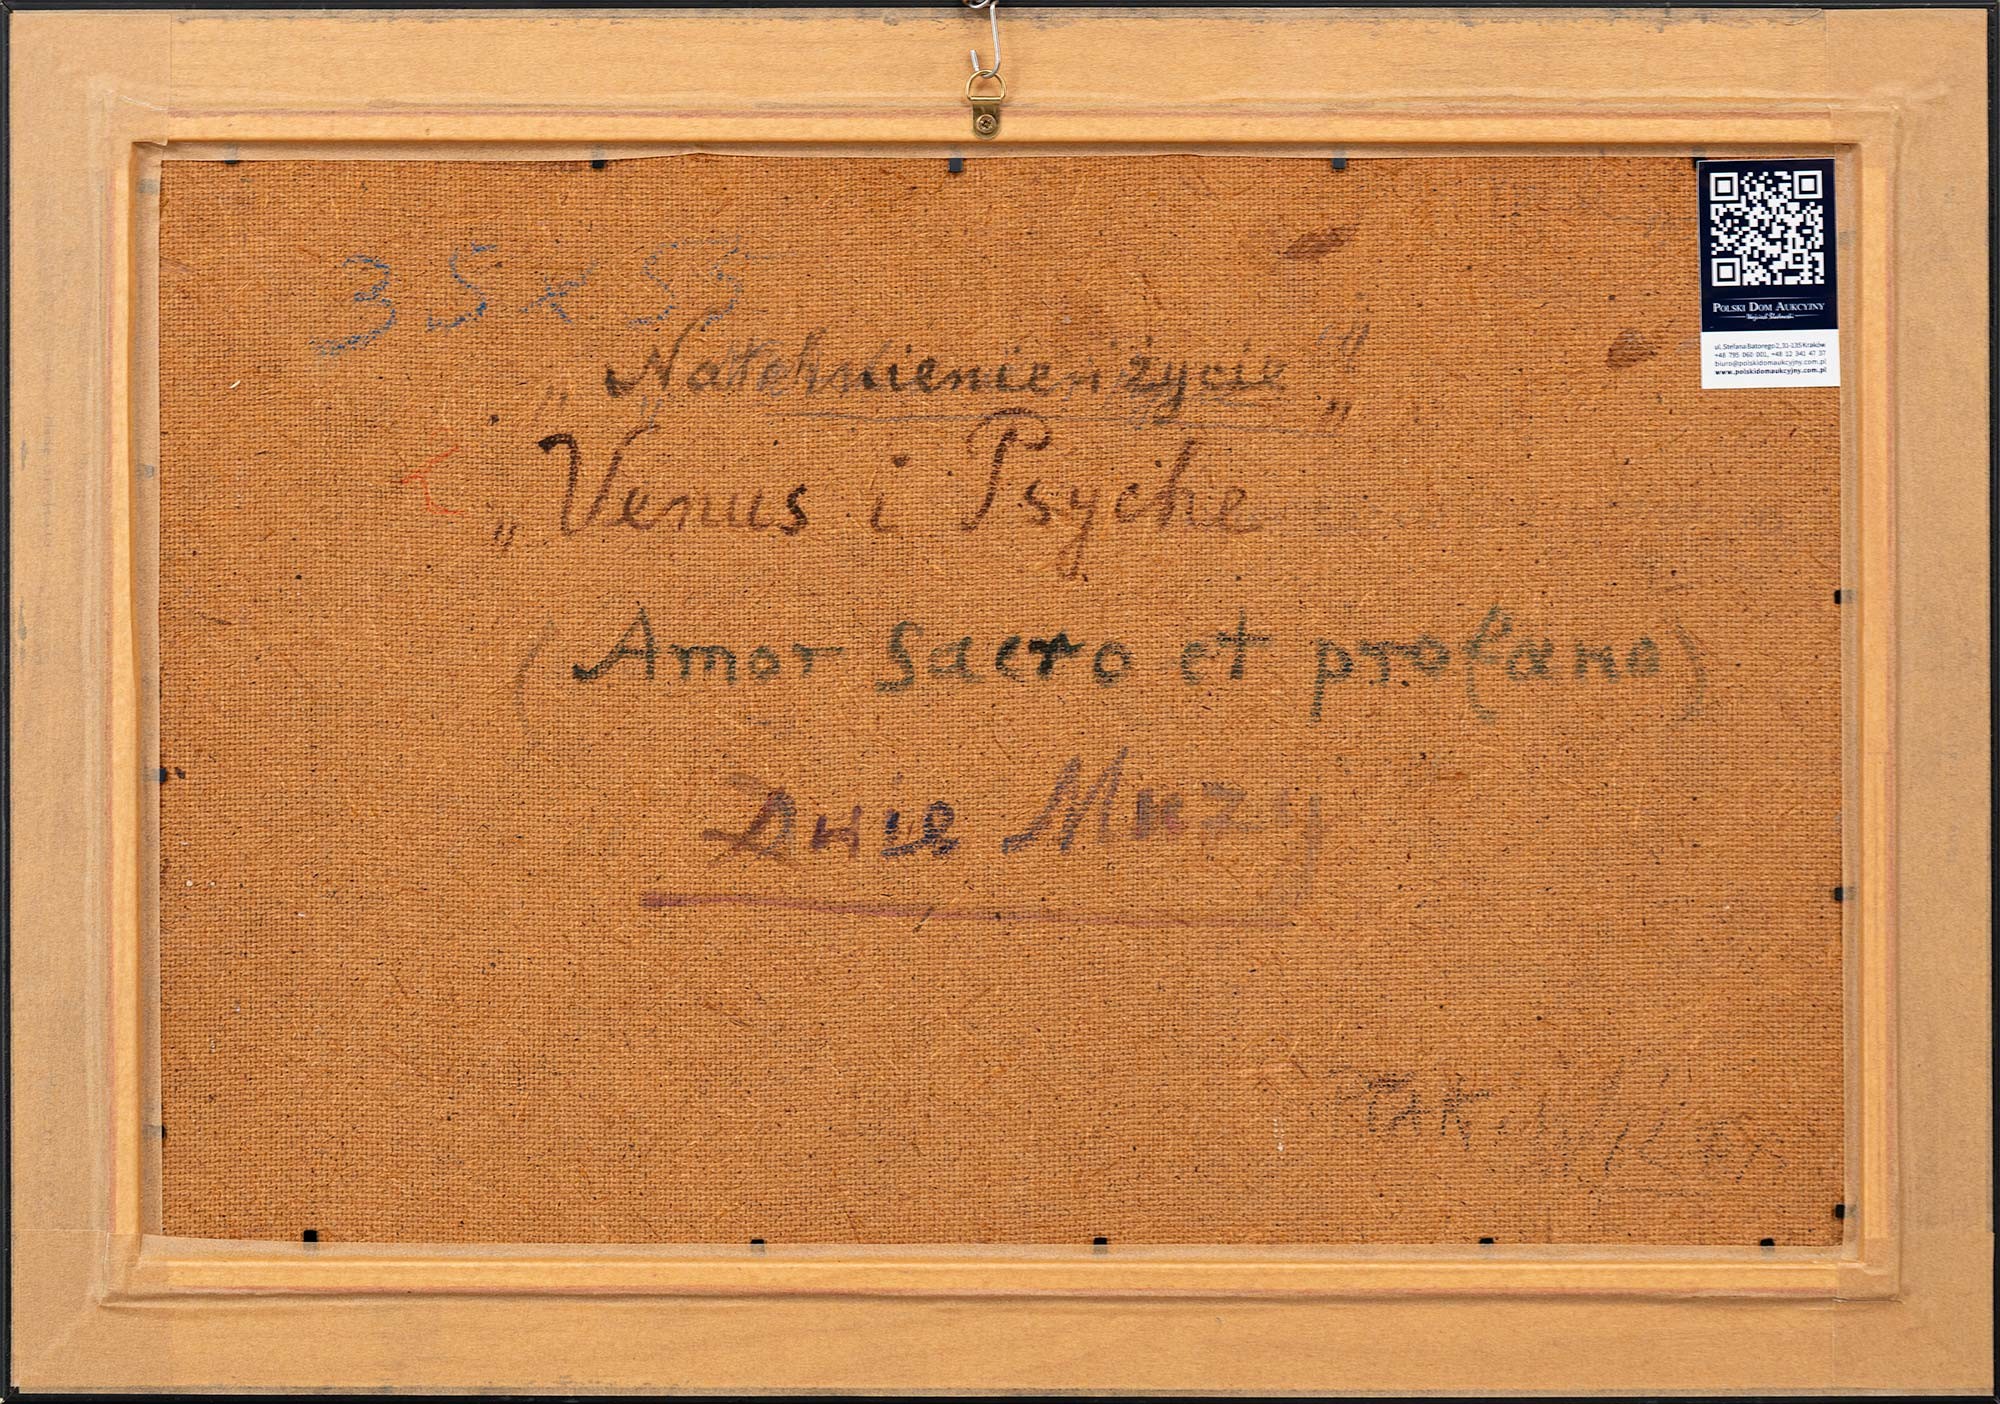 35 x 55
„Natchnienie i życie"
„Venus i Psyche
(Amor Sacro et profano)
Dwie Muzy
POLSKI DOM AUKCYJNY
ul. Stefana Batorego 2, 31-135 Kraków
+48 795 060 001, +48 12 341 47 37
biuro@polskidomaukcyjny.com.pl
www.polskidomaukcyjny.com.pl